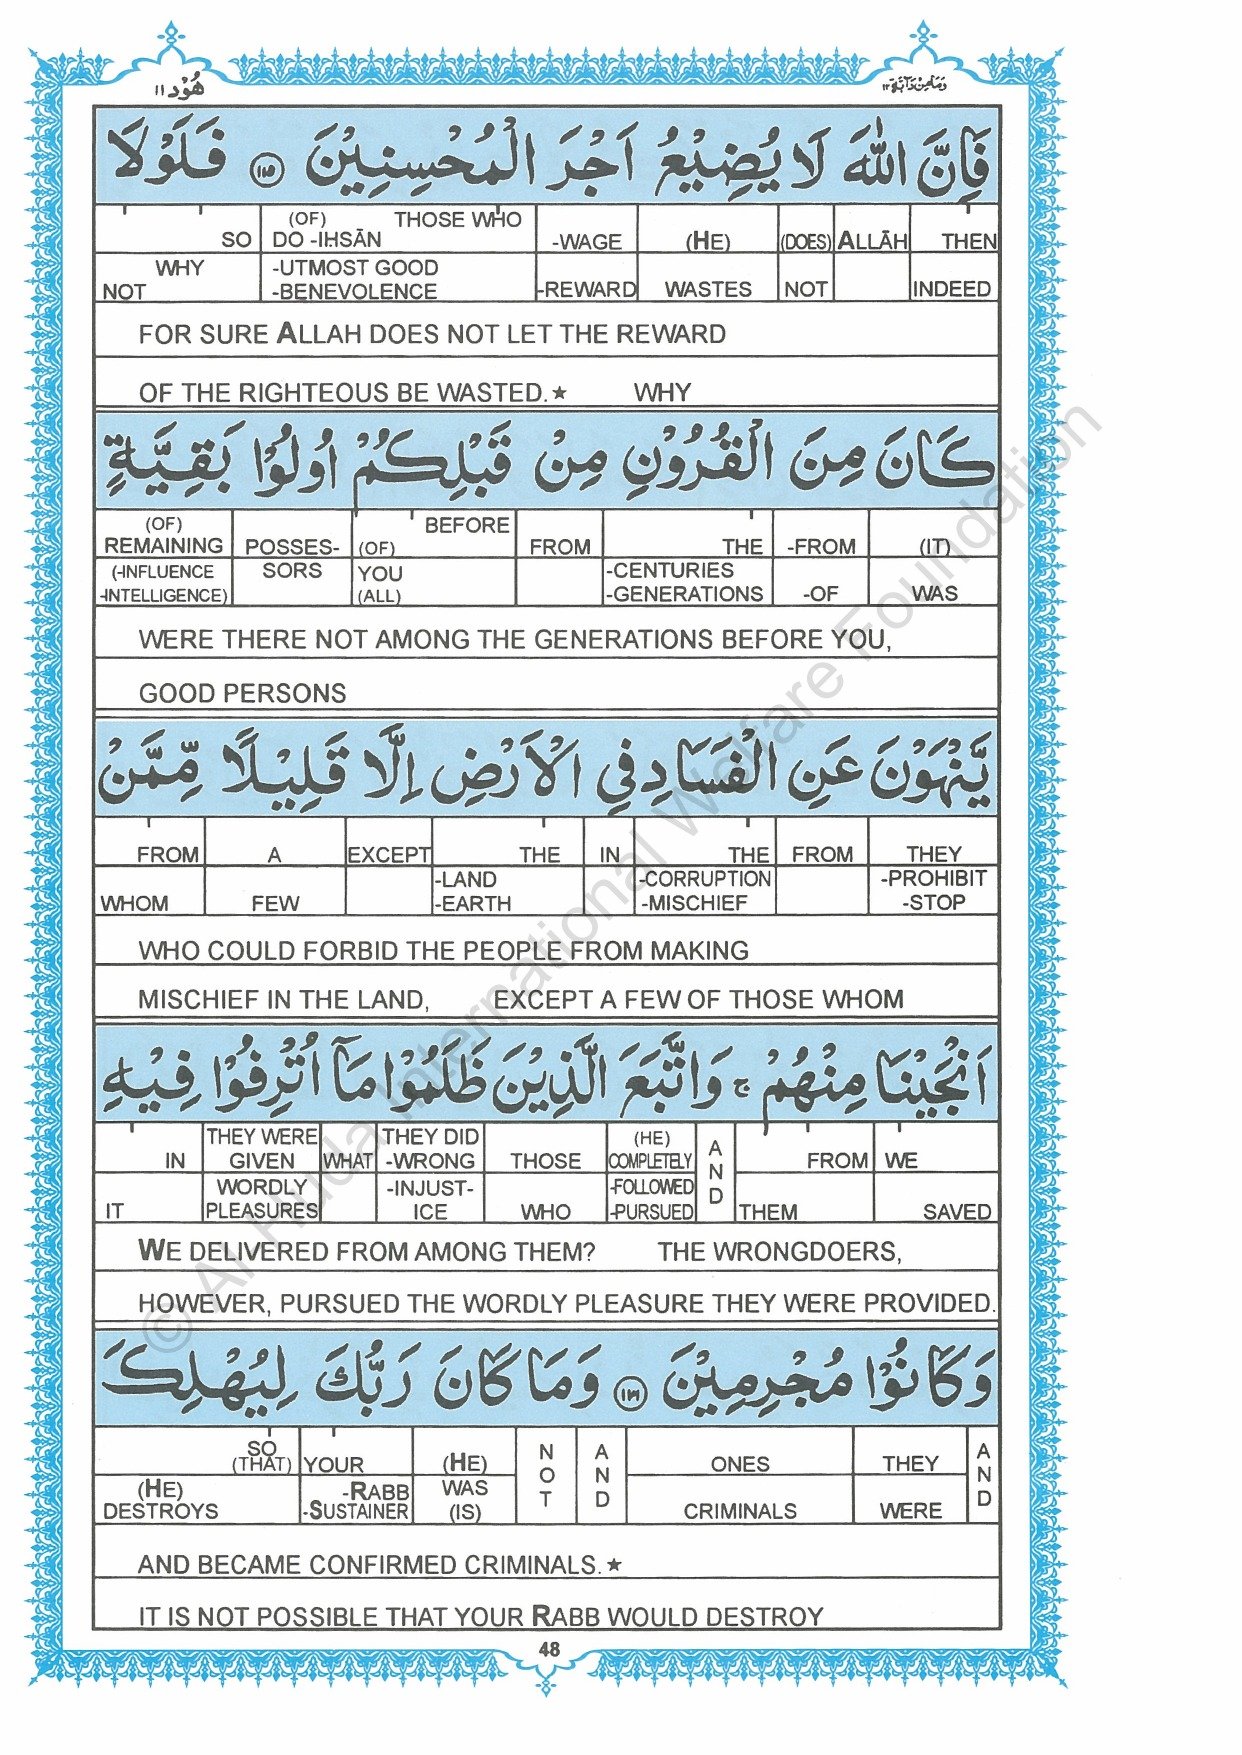 هُوْد ١١
وَمَا مِنْ دَآبَّة ١٢
فَاِنَّ اللّٰهَ لَا يُضِيْعُ اَجْرَ الْمُحْسِنِيْنَ ١١٥ فَلَوْلَا
SO (OF) THOSE WHO DO -IHSĀN -WAGE (HE) (DOES) ALLĀH THEN
WHY NOT -UTMOST GOOD -BENEVOLENCE -REWARD WASTES NOT INDEED
FOR SURE ALLAH DOES NOT LET THE REWARD
OF THE RIGHTEOUS BE WASTED.★ WHY
كَانَ مِنَ الْقُرُوْنِ مِنْ قَبْلِكُمْ اُولُوْا بَقِيَّةٍ
(OF) REMAINING POSSES- BEFORE (OF) FROM THE -FROM (IT)
(-INFLUENCE -INTELLIGENCE) SORS YOU (ALL) -CENTURIES -GENERATIONS -OF WAS
WERE THERE NOT AMONG THE GENERATIONS BEFORE YOU,
GOOD PERSONS
يَّنْهَوْنَ عَنِ الْفَسَادِ فِي الْاَرْضِ اِلَّا قَلِيْلًا مِّمَّنْ
FROM A EXCEPT THE IN THE FROM THEY
WHOM FEW -LAND -EARTH -CORRUPTION -MISCHIEF -PROHIBIT -STOP
WHO COULD FORBID THE PEOPLE FROM MAKING
MISCHIEF IN THE LAND, EXCEPT A FEW OF THOSE WHOM
اَنْجَيْنَا مِنْهُمْ ۚ وَاتَّبَعَ الَّذِيْنَ ظَلَمُوْا مَآ اُتْرِفُوْا فِيْهِ
IN THEY WERE GIVEN WHAT THEY DID -WRONG THOSE (HE) COMPLETELY AND FROM WE
IT WORDLY PLEASURES -INJUST-ICE WHO -FOLLOWED -PURSUED THEM SAVED
WE DELIVERED FROM AMONG THEM? THE WRONGDOERS,
HOWEVER, PURSUED THE WORDLY PLEASURE THEY WERE PROVIDED.
وَكَانُوْا مُجْرِمِيْنَ ١١٦ وَمَا كَانَ رَبُّكَ لِيُهْلِكَ
SO (THAT) YOUR (HE) NOT AND ONES THEY AND
(HE) DESTROYS -RABB -SUSTAINER WAS (IS) CRIMINALS WERE
AND BECAME CONFIRMED CRIMINALS.★
IT IS NOT POSSIBLE THAT YOUR RABB WOULD DESTROY
48
© Al Huda International Welfare Foundation